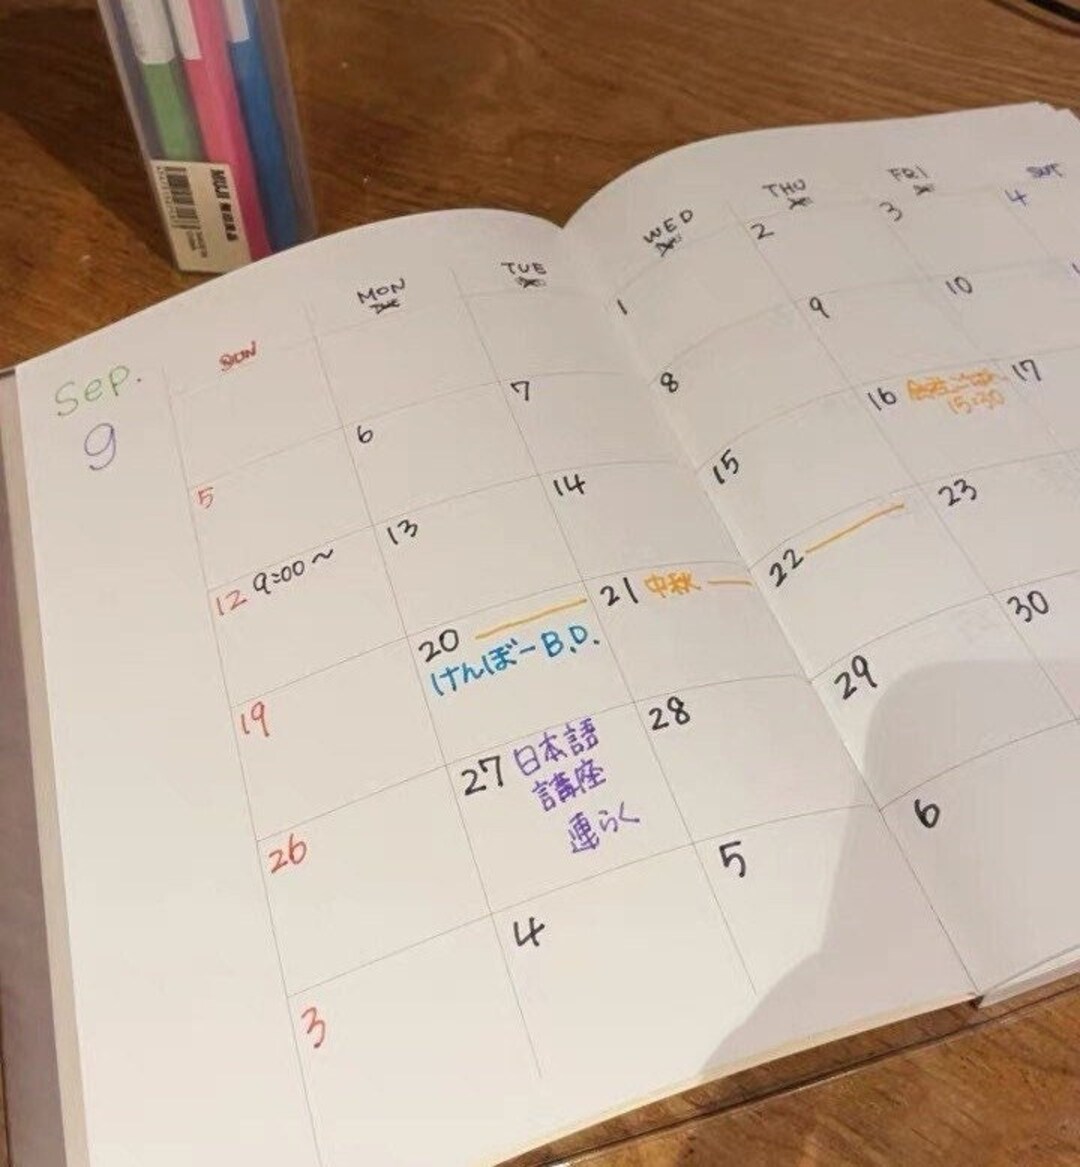 MUJI 無印良品
Sep.
9
SUN
MON
TUE
WED
THU
FRI
SUT
1
2
3
4
5
6
7
8
9
10
12 9:00~
13
14
15
16
15:30
17
19
20
けんぼーB.D.
21 中秋
22
23
26
27 日本語
講座
連らく
28
29
30
3
4
5
6